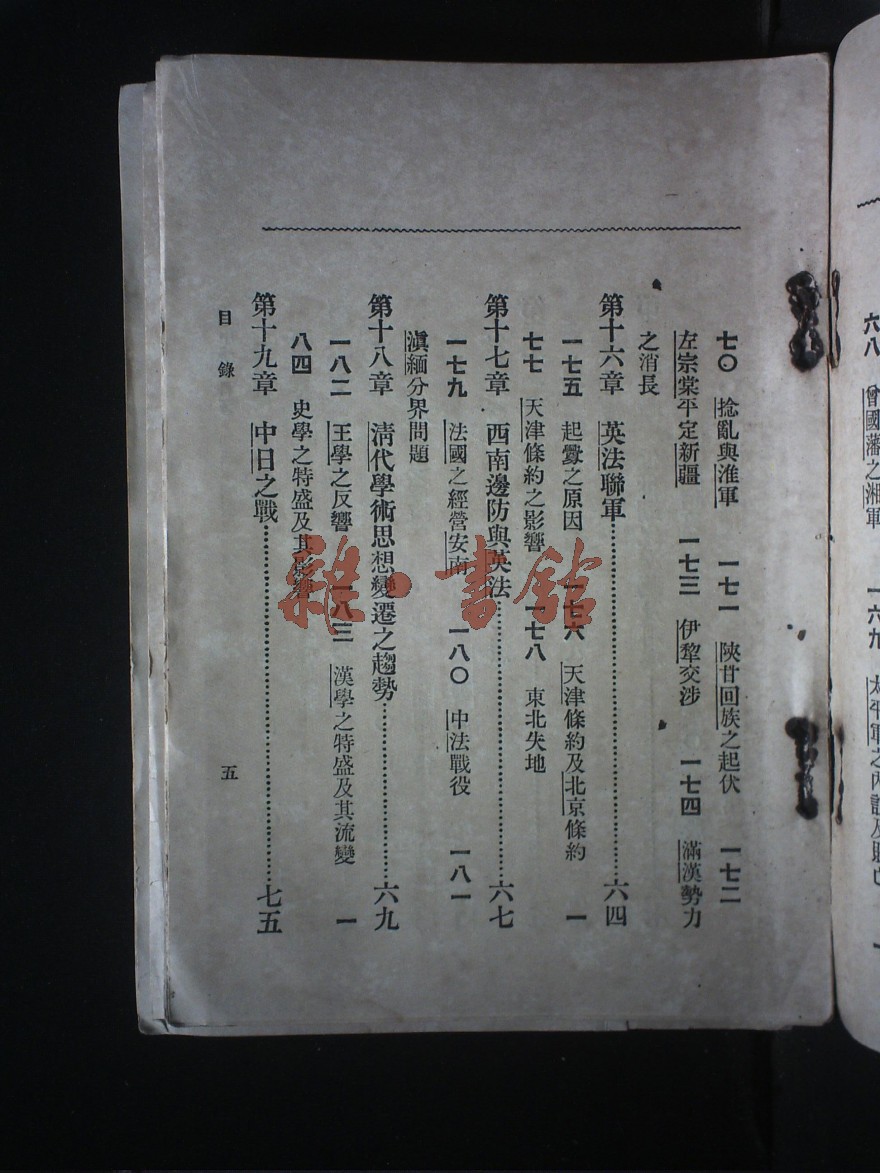 七〇　捻亂與淮軍　一七一　陝甘回族之起伏　一七二
左宗棠平定新疆　一七三　伊犂交涉　一七四　滿漢勢力
之消長
第十六章　英法聯軍……六四
一七五　起釁之原因　一七六　天津條約及北京條約　一
七七　天津條約之影響　一七八　東北失地
第十七章　西南邊防與英法……六七
一七九　法國之經營安南　一八〇　中法戰役　一八一
滇緬分界問題
第十八章　清代學術思想變遷之趨勢……六九
一八二　王學之反響　一八三　漢學之特盛及其流變　一
八四　史學之特盛及其影響
第十九章　中日之戰……七五
目錄
五
六八　曾國藩之湘軍　一六九　太平軍之內訌及
雜·書館